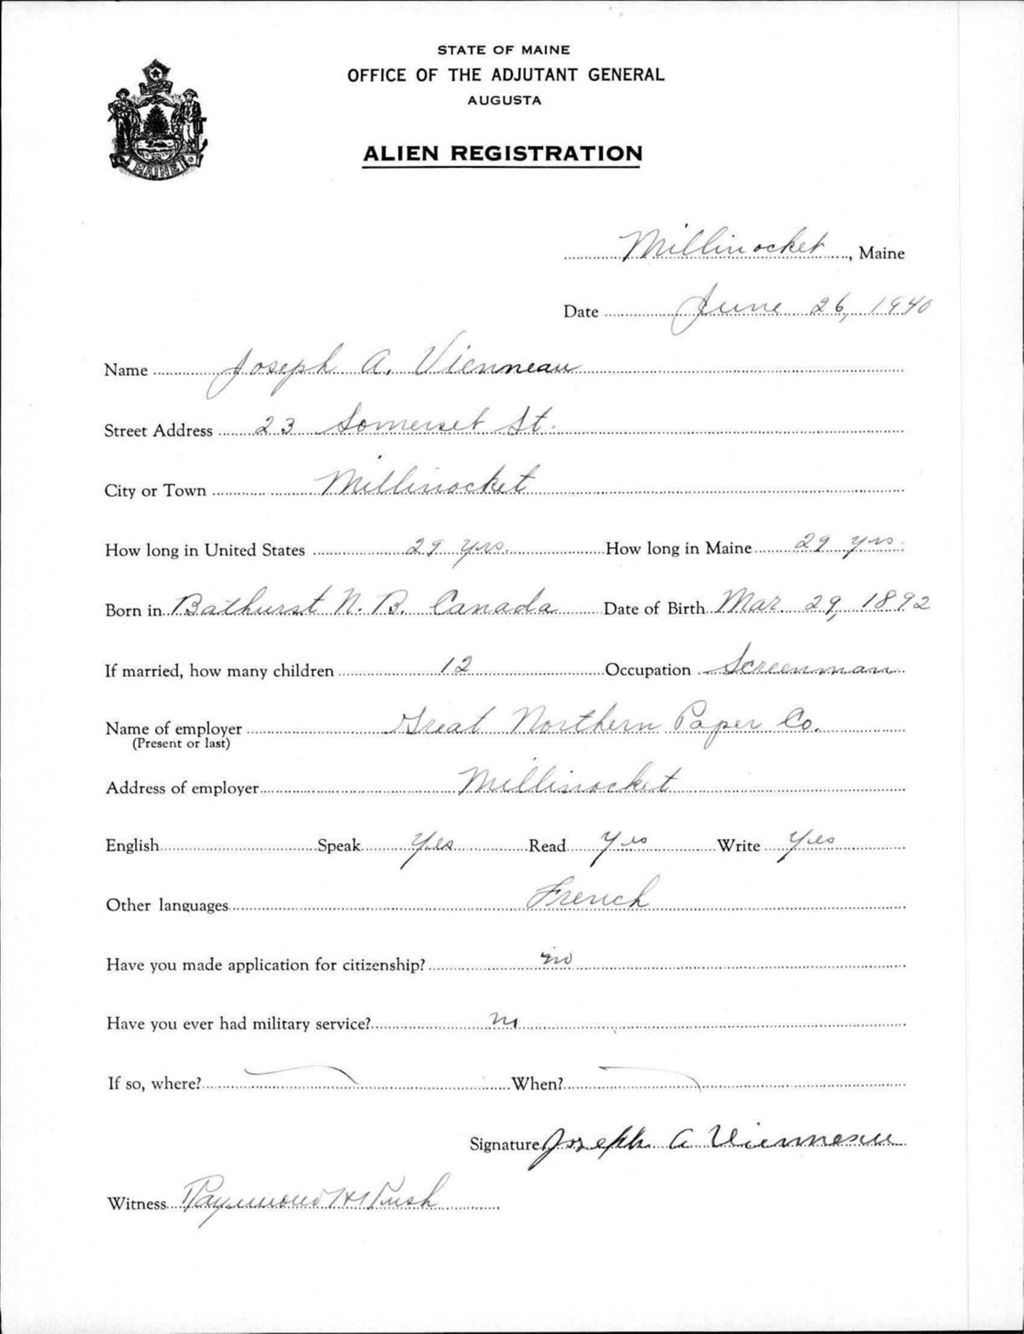 STATE OF MAINE
OFFICE OF THE ADJUTANT GENERAL
AUGUSTA
ALIEN REGISTRATION
MAINE
Millinocket, Maine
Date June 26, 1940
Name Joseph A. Vienneau
Street Address 23 Somerset St.
City or Town Millinocket
How long in United States 29 yrs. How long in Maine 29 yrs.
Born in Bathurst N. B. Canada Date of Birth Mar 29, 1892
If married, how many children 12 Occupation Screenman
Name of employer Great Northern Paper Co.
(Present or last)
Address of employer Millinocket
English Speak Yes Read Yes Write Yes
Other languages French
Have you made application for citizenship? no
Have you ever had military service? no
If so, where? When?
Signature Joseph A Vienneau
Witness Raymond H